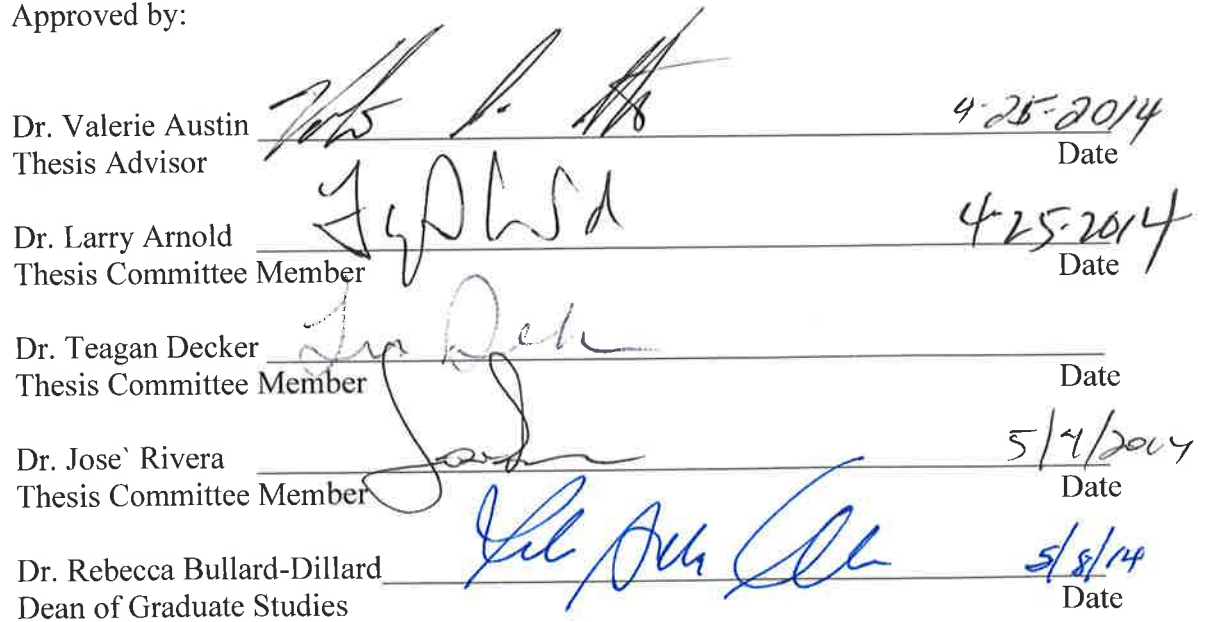 Approved by:
Dr. Valerie Austin 4-25-2014
Thesis Advisor Date
Dr. Larry Arnold 4-25-2014
Thesis Committee Member Date
Dr. Teagan Decker
Thesis Committee Member Date
Dr. Jose` Rivera
Thesis Committee Member Date
Dr. Rebecca Bullard-Dillard 5/8/14
Dean of Graduate Studies Date